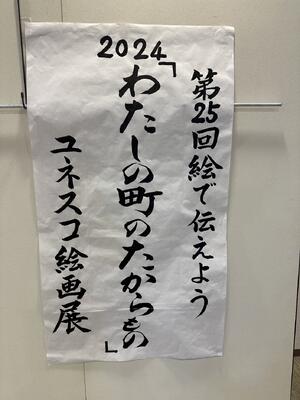 第25回絵で伝えよう
2024「わたしの町のたからもの」
ユネスコ絵画展